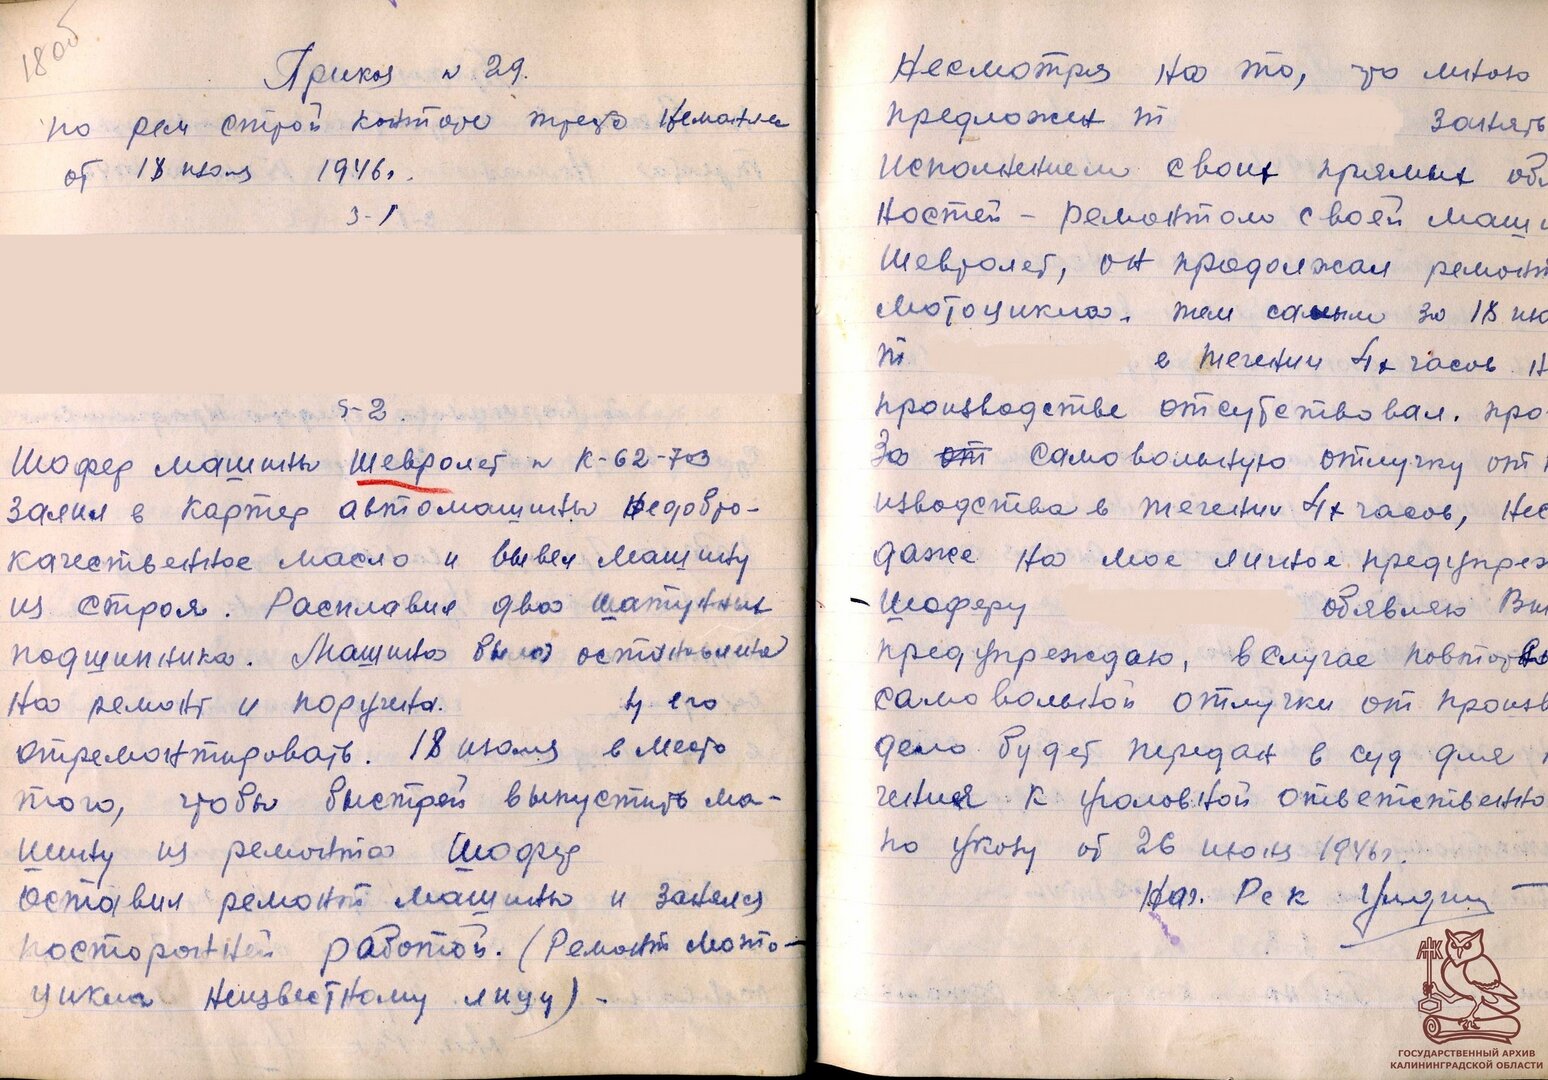 18об
Приказ № 29.
по рем строй конторе треста
от 18 июля 1946г.
§-1
§-2.
Шофер машины Шевролет № К-62-703
залил в картер автомашины недобро-
качественное масло и вывел машину
из строя. Расплавил два шатунных
подшипника. Машина была остановлена
на ремонт и поручена. его
отремонтировать. 18 июля в место
того, чтобы быстрей выпустить ма-
шину из ремонта Шофер
оставил ремонт машины и занялся
посторонней работой. (Ремонт мото-
цикла неизвестному лицу) -
Несмотря на то, что мною
предложен т занять
исполнением своих прямых обя
ностей - ремонтом своей маши
Шевролет, он продолжал ремонт
мотоцикла. тем самым за 18 ию
т в течении 4х часов н
производстве отсутствовал. про
За от самовольную отлучку от п
изводства в течении 4х часов, нес
даже на мое личное предупреж
Шоферу объявляю Вы
предупреждаю, в случае повторной
самовольной отлучки от произв
дело будет передан в суд для п
чения к уголовной ответственно
по указу от 26 июня 1946г.
Нач. Рск
АК
ГОСУДАРСТВЕННЫЙ АРХИВ
КАЛИНИНГРАДСКОЙ ОБЛАСТИ